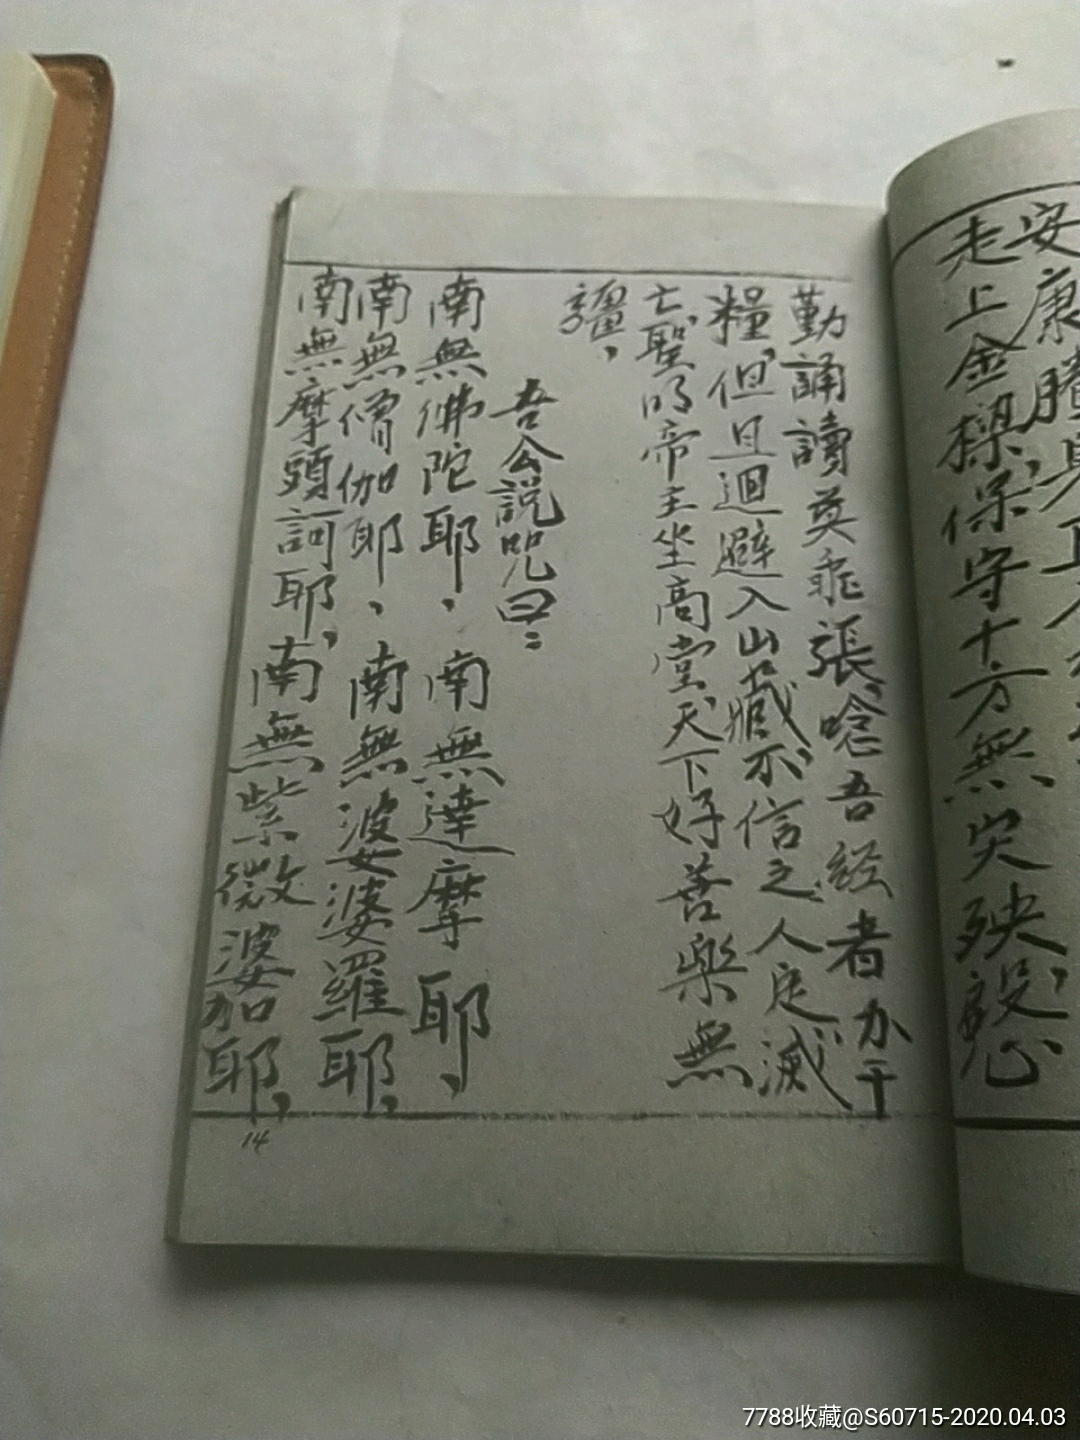 安康騰身
走上金樑，保守十方無灾殃，設心
勤誦讀莫乖張，唸吾經者加干
糧，但且迴避入山藏，不信之人定滅
亡，聖明帝主坐高堂，天下好善樂無
疆，
吾公說咒曰：
南無佛陀耶，南無達摩耶，
南無僧伽耶，南無婆婆羅耶，
南無摩頭訶耶，南無紫微婆加耶，
14
7788收藏@S60715-2020.04.03